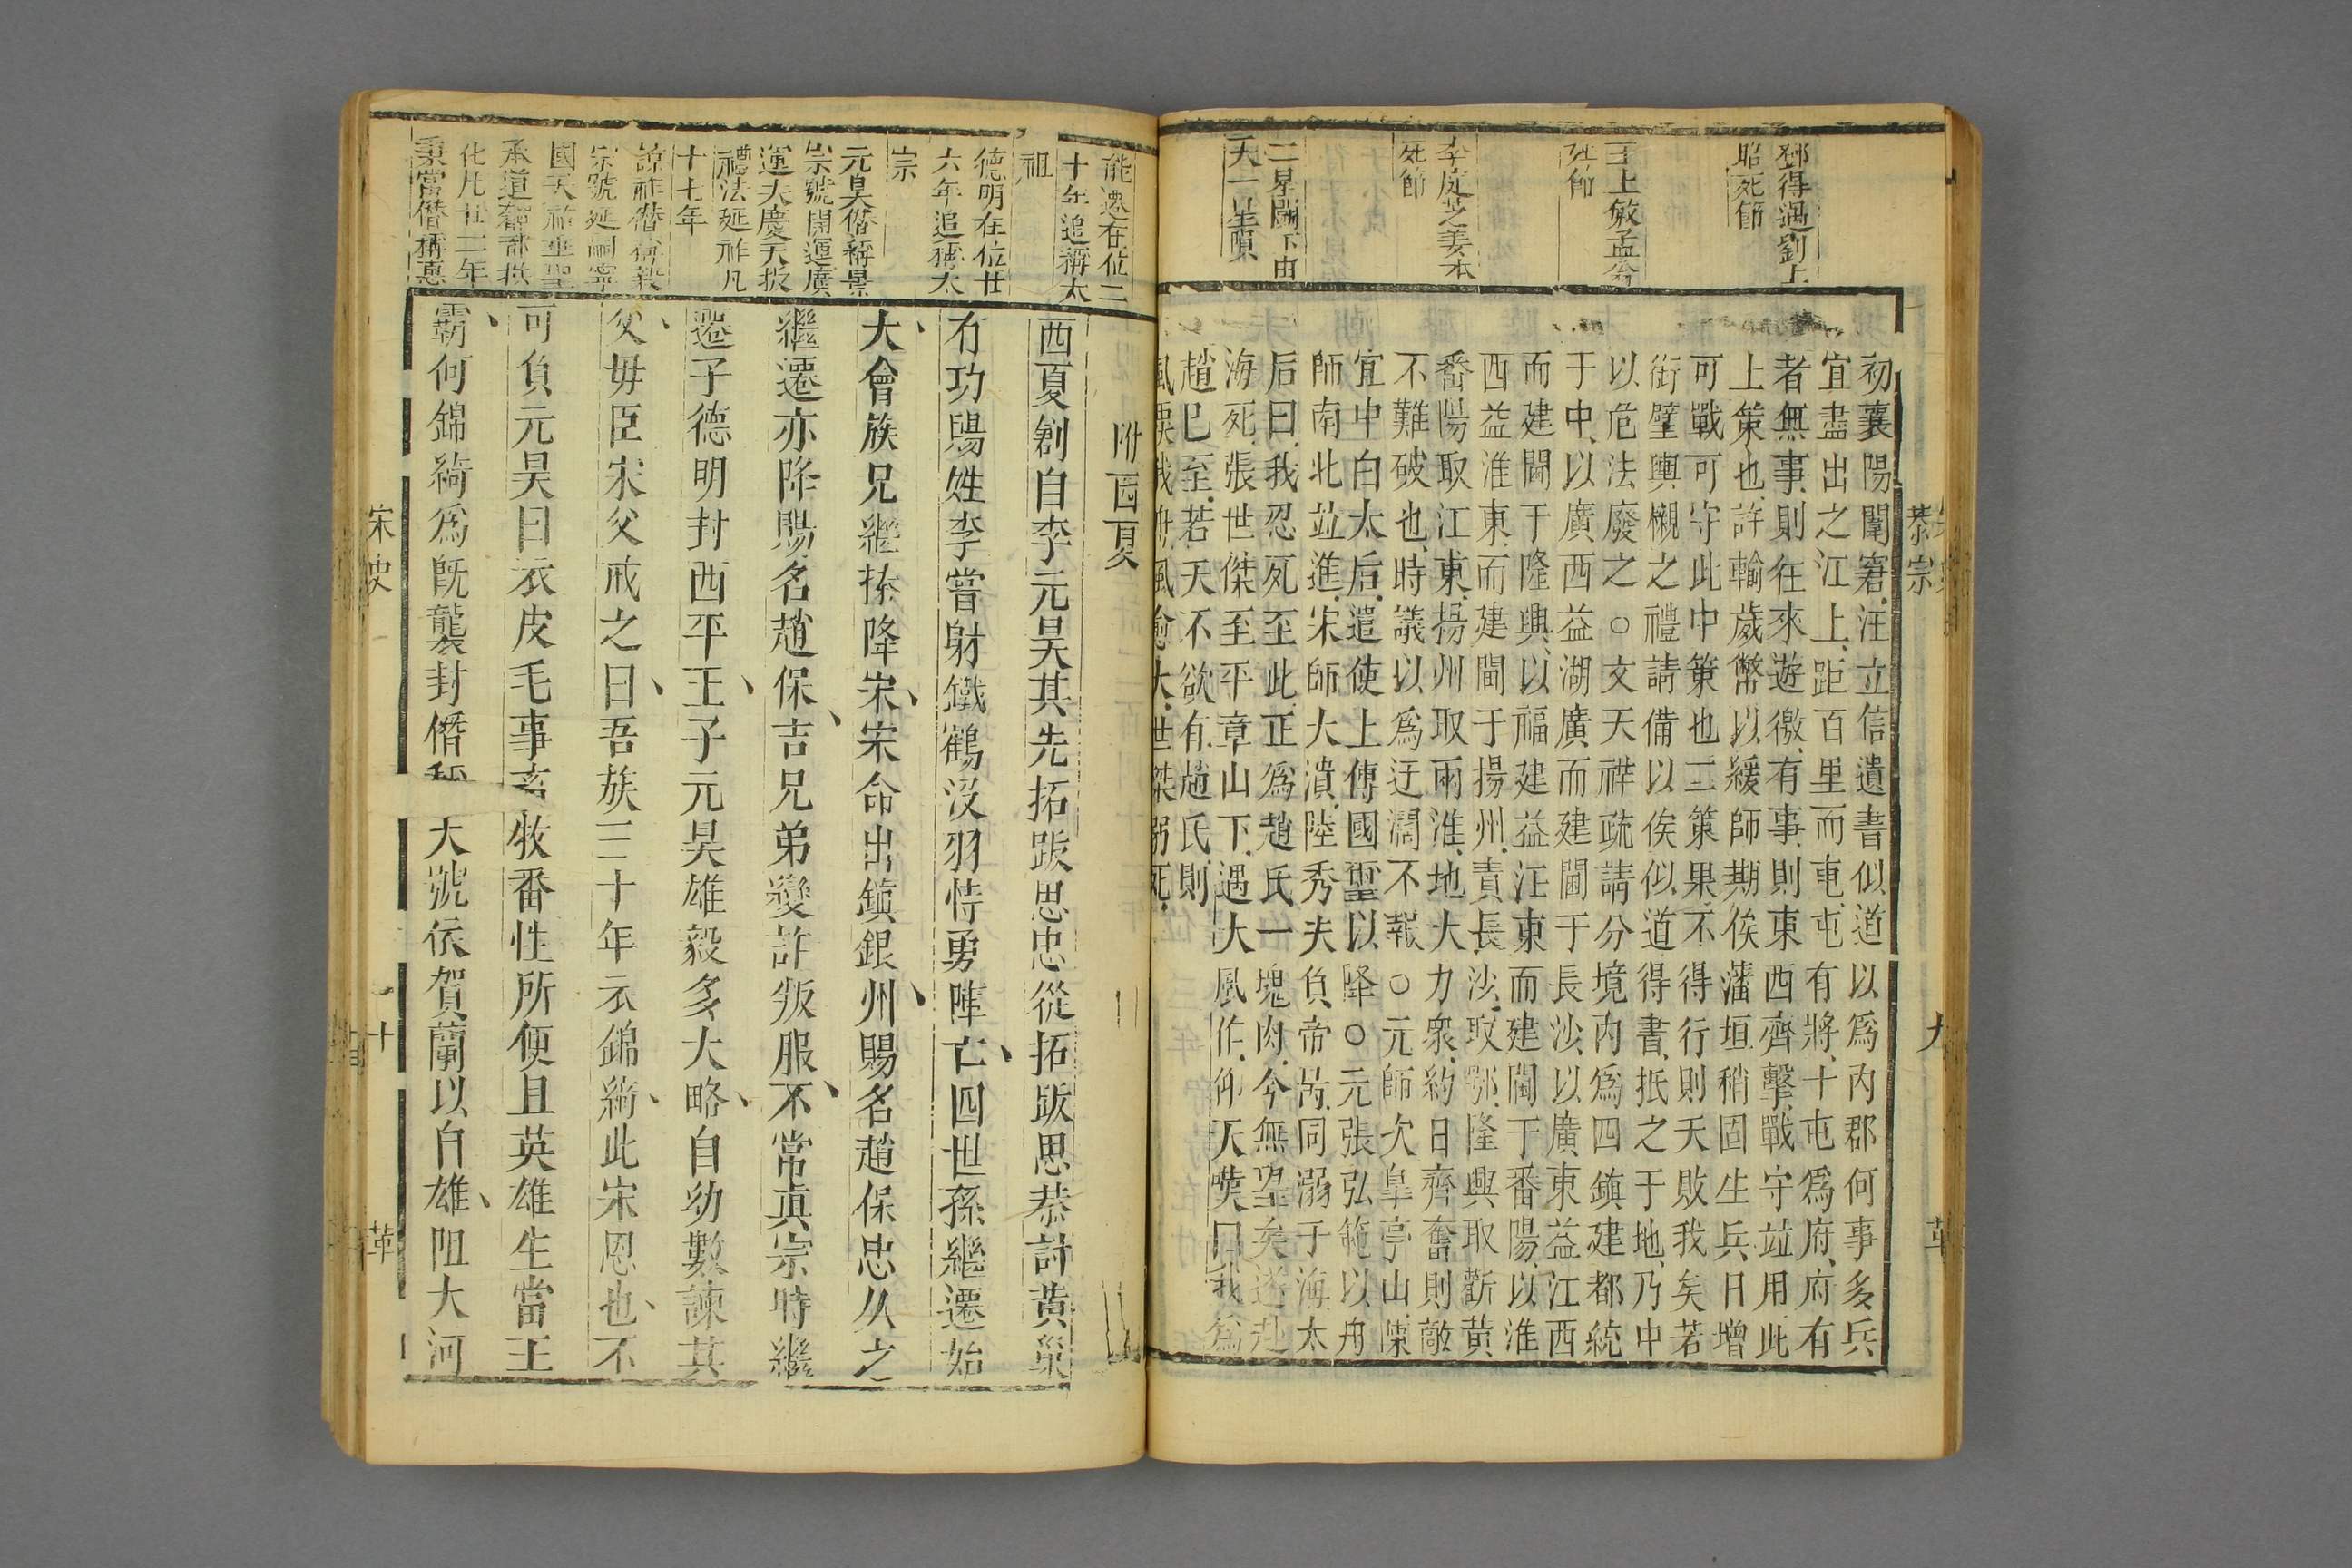 鄧得遇劉上
昭死節
王上敏孟分
死節
李庭芝姜才
死節
二星鬭下由
天一星隕
恭宗
九
初襄陽闈窘汪立信遺書似道以爲内郡何事多兵
宜盡出之江上距百里而屯屯有將十屯爲府府有
者無事則往來遊徼有事則東西齊擊戰守竝用此
上策也許輸歲幣以緩師期俟藩垣稍固生兵日增
可戰可守此中策也二策果不得行則天敗我矣若
銜璧輿櫬之禮請備以俟似道得書抵之于地乃中
以危法廢之○文天祥疏請分境内爲四鎮建都統
于中以廣西益湖廣而建閫于長沙以廣東益江西
而建閫于隆興以福建益江東而建閫于番陽以淮
西益淮東而建閫于揚州責長沙取鄂隆興取蘄黄
番陽取江東揚州取兩淮地大力衆約日齊奮則敵
不難破也時議以爲迂濶不報○元師次皐亭山陳
宜中白太后遣使上傳國璽以降○元張弘範以舟
師南北竝進宋師大潰陸秀夫負帝昺同溺于海太
后曰我忍死至此正爲趙氏一塊肉今無望矣遂赴
海死張世傑至平章山下遇大風作仰天嘆曰我爲
趙已至若天不欲有趙氏則
風覆我舟風愈大世傑溺死
附西夏
能遷在位二
十年追稱太
祖
德明在位廿
六年追稱太
宗
元昊僭稱景
宗號開運廣
運大慶天授
禮法延祚凡
十七年
諒祚僭稱毅
宗號延嗣寧
國天祐垂聖
承道奲都拱
化凡廿二年
秉常僭稱惠
西夏創自李元昊其先拓跋思忠從拓跋思恭討黄巢
有功賜姓李嘗射鐵鶴没羽恃勇陣亡四世孫繼遷始
大會族兄繼捧降宋宋命出鎮銀州賜名趙保忠久之
繼遷亦降賜名趙保吉兄弟變詐叛服不常真宗時繼
遷子德明封西平王子元昊雄毅多大略自幼數諫其
父毋臣宋父戒之曰吾族三十年衣錦綺此宋恩也不
可負元昊曰衣皮毛事畜牧番性所便且英雄生當王
霸何錦綺爲旣襲封僭稱大號依賀蘭以自雄阻大河
宋史
十
革